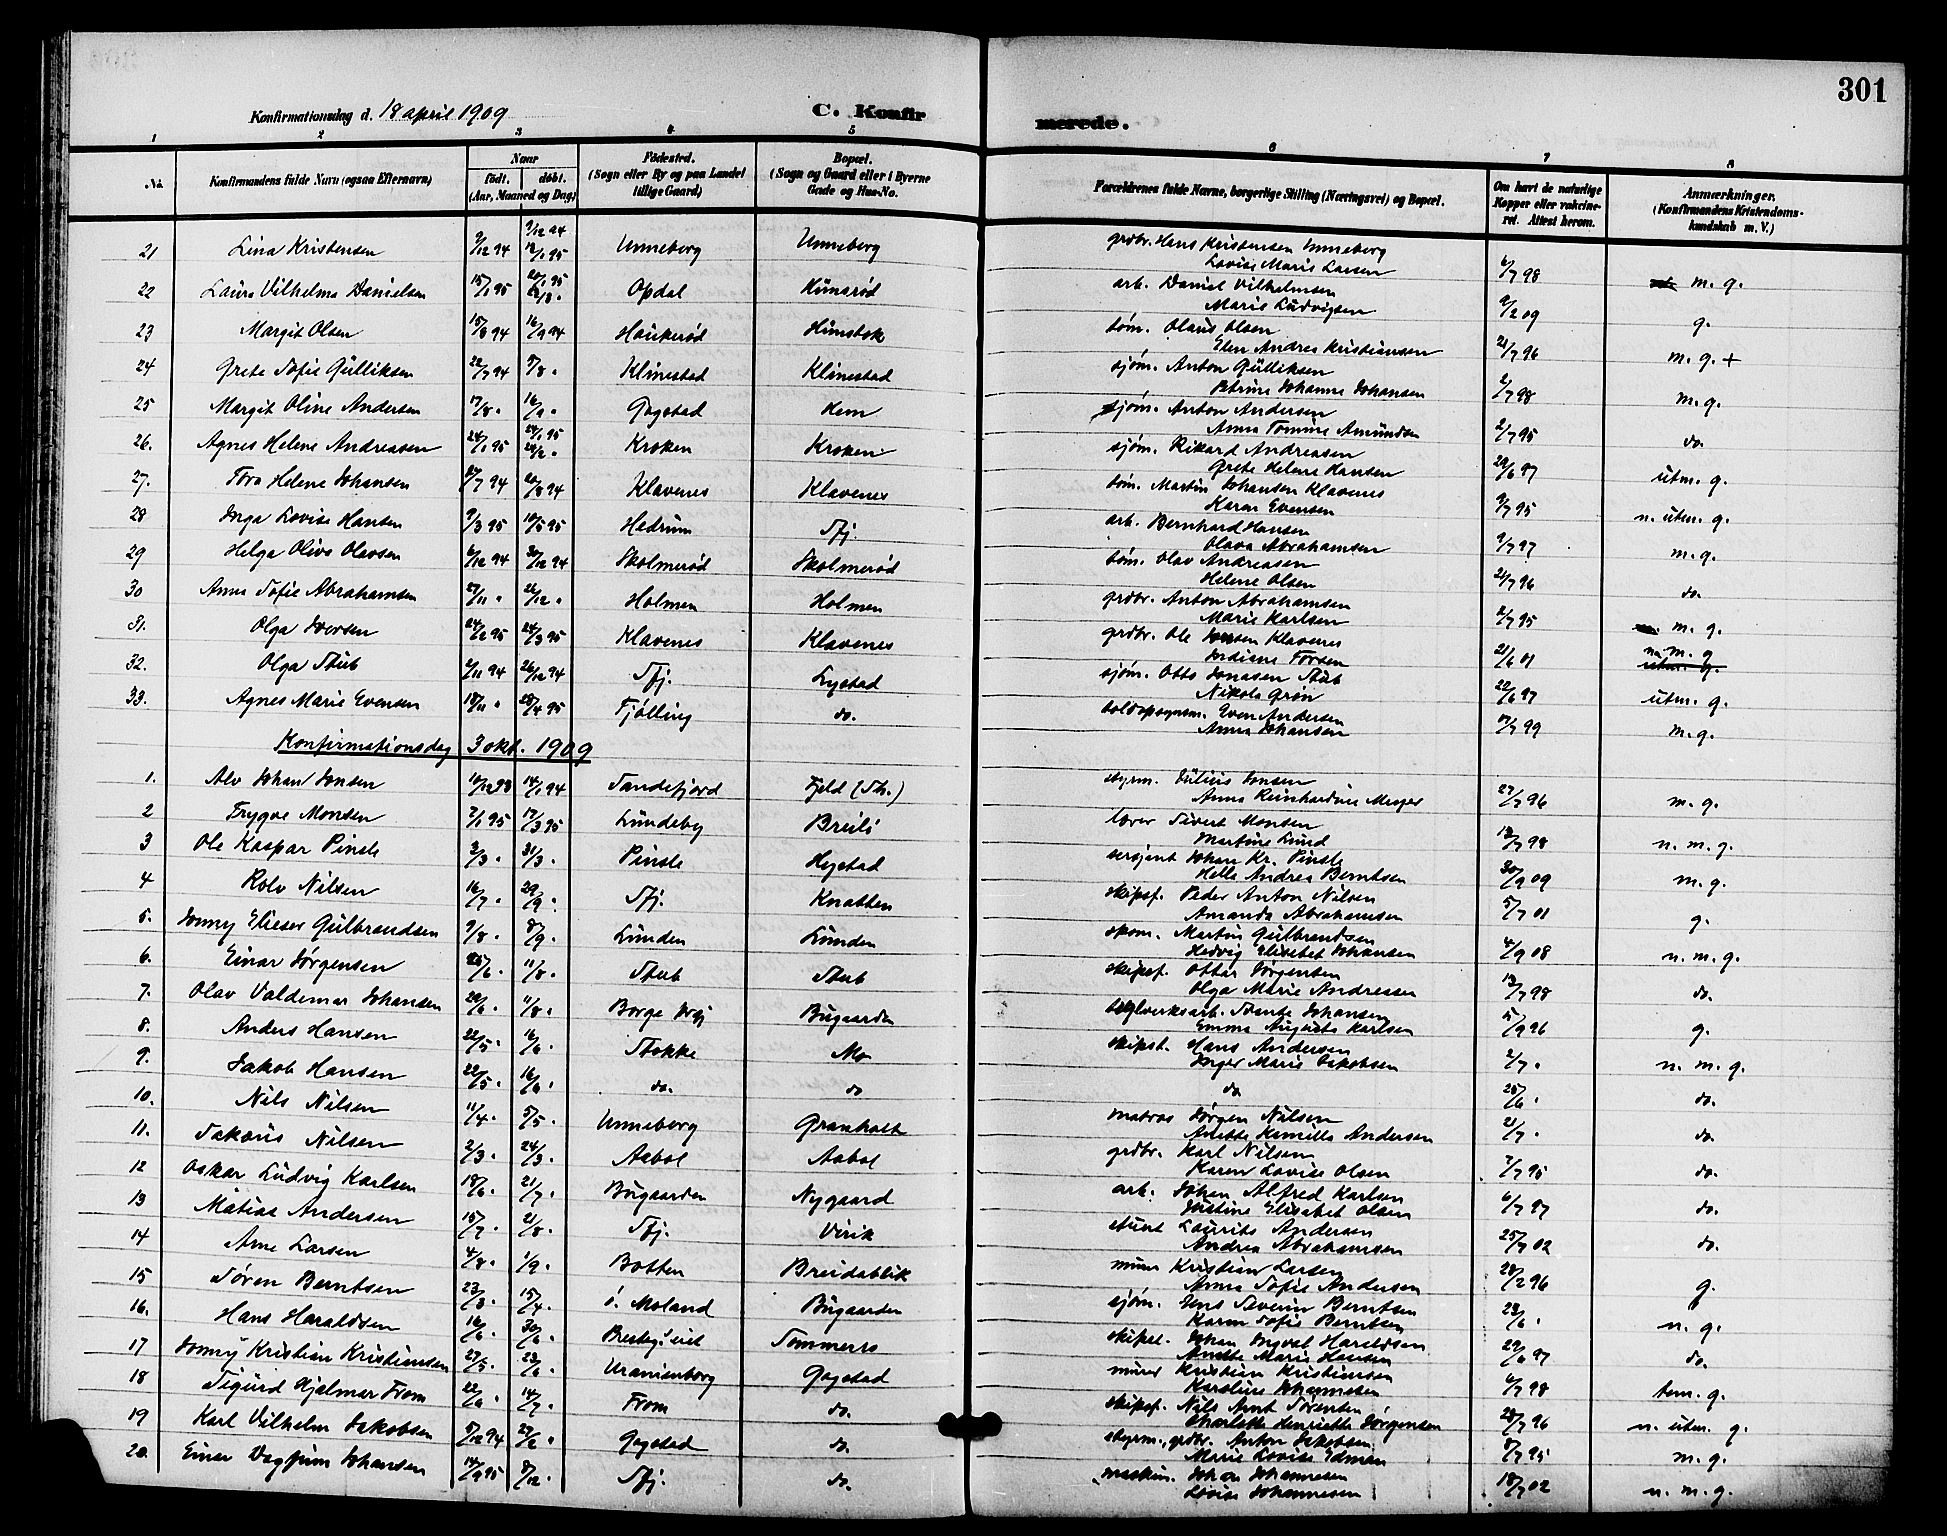 301
Konfirmationsdag d. 18 april 1909 C. Konfirmerede.
1 2 3 4 5 6 7 8
No. Konfirmandens fulde Navn (ogsaa Efternavn) Naar født. døbt. (Aar, Maaned og Dag) Fødested. (Sogn eller By og paa Landet tillige Gaard) Bopæl. (Sogn og Gaard eller i Byerne Gade og Hus-No. Forældrenes fulde Navne, borgerlige Stilling (Næringsvei) og Bopæl. Om havt de naturlige Kopper eller vakcineret. Attest herom. Anmærkninger. (Konfirmandens Kristendomskundskab m. V.)
21 Lina Kristensen 9/12 94 9/12 94 Unneberg Unneberg grdbr. Hans Kristensen Unneberg 6/7 98 m. g.
13/1 95 Lovise Marie Larsen
22 Laura Vilhelma Danielsen 15/1 95 20/1 95 Opdal Kamerød arb. Daniel Vilhelmsen 9/2 09 g.
Marie Ludvigsen
23 Margit Olsen 15/8 94 16/9 94 Haukerød Himstok tøm. Olaus Olsen 21/7 96 m. g. +
Elen Andrea Kristiansen
24 Grete Sofie Gulliksen 22/7 94 5/8 " Klinestad Klinestad sjøm. Anton Gulliksen 2/7 98 m. g.
Petrine Johanne Johansen
25 Margit Oline Andersen 17/8 " 16/9 " Gogstad Kem sjøm. Anton Andersen 2/7 95 do.
Anna Tomine Amundsen
26. Agnes Helene Andreasen 24/1 95 24/1 95 Kroken Kroken sjøm. Rikard Andreasen 29/6 97 utm. g.
24/2 " Grete Helene Hansen
27. Tora Helene Johansen 27/7 94 20/8 94 Klavenes Klavenes tøm. Martin Johansen Klavenes 9/7 95 n. utm. g.
Karen Evensen
28 Inga Lovise Hansen 9/3 95 10/5 95 Hedrum Sfj. arb. Bernhard Hansen 9/7 97 m. g.
Olava Abrahamsen
29 Helga Olive Olavsen 6/12 94 30/12 94 Skolmerød Skolmerød tøm. Olav Andreasen 24/7 96 do.
Helene Olsen
30 Anna Sofie Abrahamsen 27/11 " 26/12 " Holmen Holmen grdbr. Anton Abrahamsen 2/7 95 m. g.
Marie Karlsen
31. Olga Iversen 24/2 95 24/3 95 Klavenes Klavenes grdbr. Ole Klavenes 21/6 01 n. m. g
utm. g.
32. Olga Stub 2/11 94 26/12 94 Sfj. Lystad sjøm. Otto Jonasen Stub 22/6 97 utm. g.
Nikola Grøn
33. Agnes Marie Evensen 18/11 " 28/4 95 Fjølling do. toldopsynsm. Even Andersen 17/7 99 m. g.
Anna Johansen
Konfirmationsdag 3 okt. 1909
1. Alv Johan Jonsen 10/12 93 14/1 94 Sandefjord Fjeld (Sh.) styrm. Julius Jonsen 27/7 96 m. g.
Anna Reinhardine Meyer
2 Trygve Monsen 7/1 95 17/3 95 Lundeby Breili lærer Sivert Monsen 13/7 98 n. m. g.
Martine Lund
3 Ole Kaspar Pinsle 3/3 " 31/3 " Pinsle Hegstad sersjent Johan Kr. Pinsle 30/9 09 m. g.
Helle Andrea Berntsen
4 Rolv Nilsen 16/7 " 29/9 " Sfj. Knatten skipsf. Peder Anton Nilsen 5/7 01 g.
Amanda Abrahamsen
5. Jonny Elieser Gulbrandsen 9/8 " 8/9 " Lunden Lunden skom. Martin Gulbrandsen 4/9 08 n. m. g.
Hedvig Elisabet Johansen
6. Einar Jørgensen 25/6 " 11/8 " Stub Stub skipsf. Ottar Jørgensen 13/7 98 do.
Olga Marie Andreasen
7. Olav Valdemar Johansen 20/6 " 11/8 " Borge Bugaarden teglverksarb. Svante Johansen 5/9 96 g.
Emma Augusta Karlsen
8. Anders Hansen 22/5 " 16/6 " Stokke Mo skipst. Hans Andersen 2/7 " n. m. g.
Inger Marie Jakobsen
9. Jakob Hansen 22/5 " 16/6 " do. do do 25/6 " do.
10. Nils Nilsen 11/4 " 5/5 " Unneberg Granholt matros Jørgen Nilsen 21/7 " do.
Anette Kamilla Andersen
11. Sakæus Nilsen 2/3 " 24/3 " Aabol Aabol grdbr. Karl Nilsen 7/7 95 do.
Karen Lovise Olsen
12 Oskar Ludvig Karlsen 18/6 " 21/7 " Bugaarden Nygaard arb. Johan Alfred Karlsen 6/7 97 do.
Justine Elisabet Olsen
13 Matias Andersen 15/7 " 21/8 " Sfj. Virik stuert Laurits Andersen 25/7 02 do.
Andrea Abrahamsen
14 Arne Larsen 4/8 " 1/9 " Botten Breidablik murer Kristian Larsen 28/2 96 g.
Anna Sofie Andersen
15 Søren Berntsen 23/3 " 15/4 " ø. Moland Bugaarden sjøm. Jens Severin Berntsen 23/6 " n. g.
Karen Sofie Berntsen
16. Hans Haraldsen 16/6 " 30/6 " Sommerro skipst. Johan Ingval Haraldsen 29/6 97 do.
Anette Marie Hansen
17 Jonny Kristian Kristiansen 27/5 " 23/6 " Uranienborg Gogstad murer Kristian Kristiansen 6/7 98 tem. g.
Karoline Johannesen
18 Sigurd Hjalmar From 22/6 " 14/7 " From do. skipsf. Nils Arnt Sørensen 28/7 96 n. utm. g.
Charlotte Henriette Jørgensen
19 Karl Vilhelm Jakobsen 5/12 94 27/2 " Gogstad do. styrm., grdbr. Anton Jakobsen 8/7 95 m. g.
Marie Lovise Edman
20. Einar Dagfinn Johansen 14/9 95 8/12 " Sfj. do. maskin. Johan Johannesen 18/7 02 n. m. g.
Lovise Johannesen